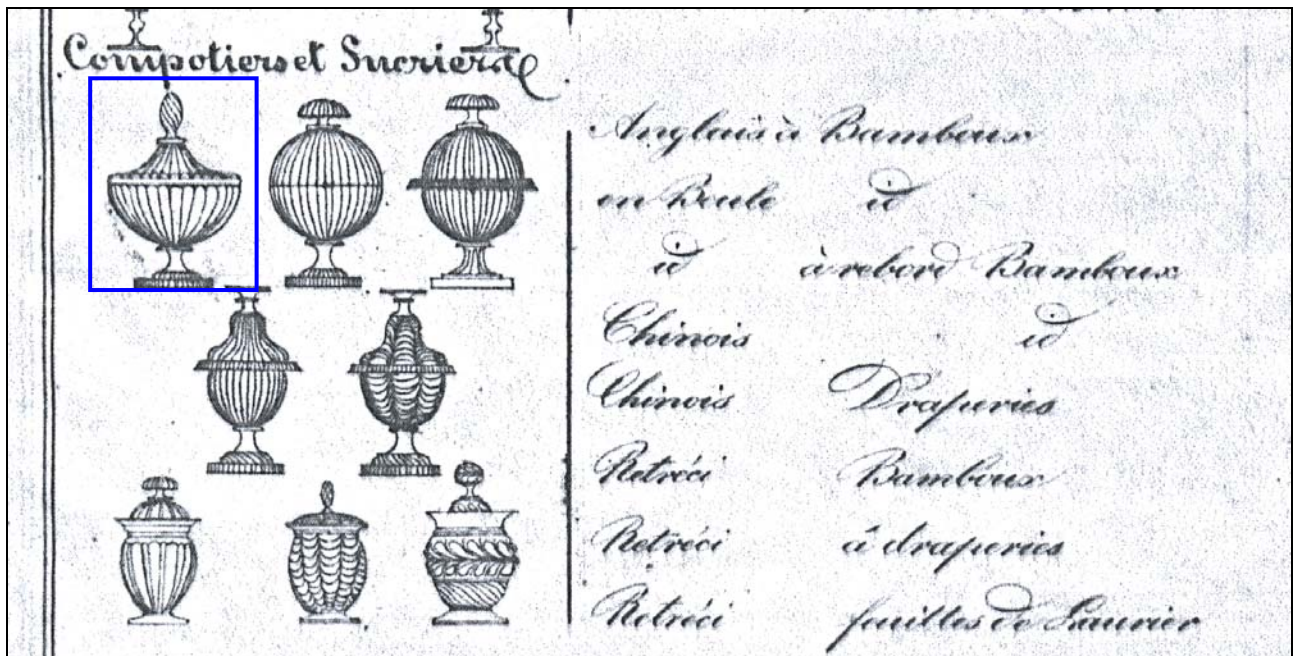 Compotiers et Sucriers
Anglais à Bamboux
en Boule id
id à rebord Bamboux
Chinois id
Chinois Draperies
Retréci Bamboux
Retréci à draperies
Retréci feuilles de Laurier